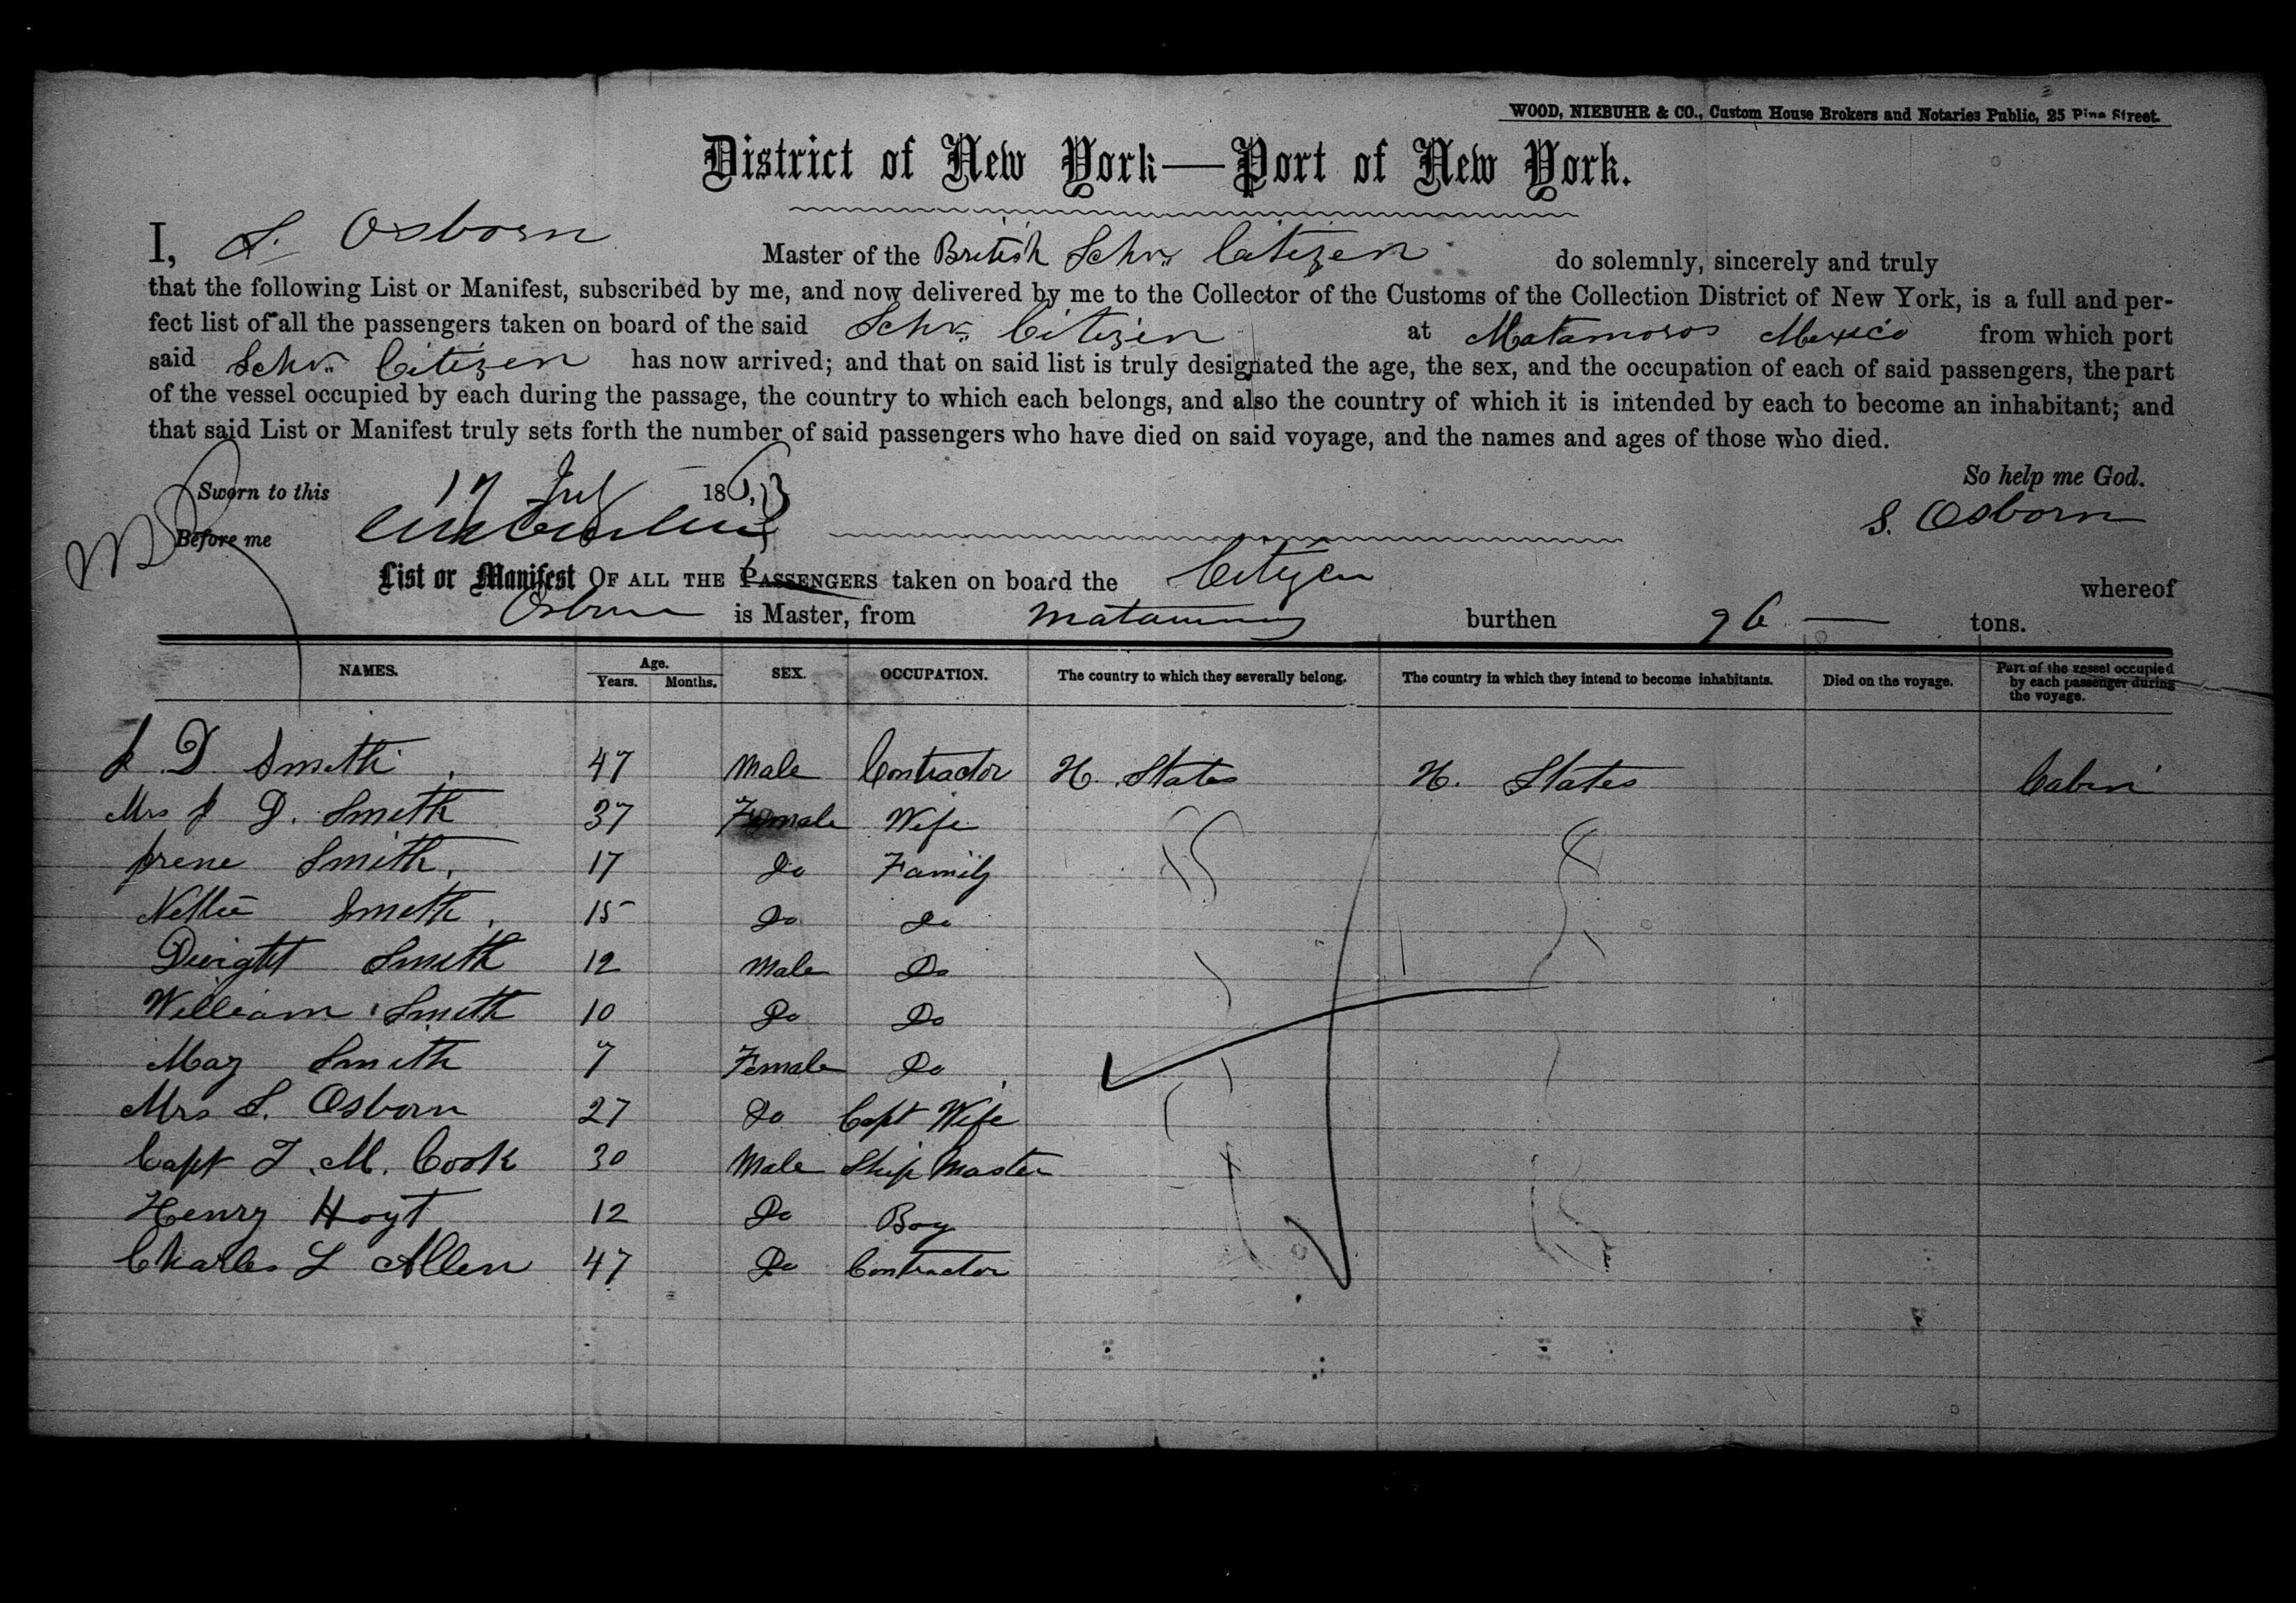 WOOD, NIEBUHR & CO., Custom House Brokers and Notaries Public, 25 Pine Street.
District of New York—Port of New York.
I, S. Osborn Master of the British Schr. Citizen do solemnly, sincerely and truly
that the following List or Manifest, subscribed by me, and now delivered by me to the Collector of the Customs of the Collection District of New York, is a full and per-
fect list of all the passengers taken on board of the said Schr. Citizen at Matamoros Mexico from which port
said Schr. Citizen has now arrived; and that on said list is truly designated the age, the sex, and the occupation of each of said passengers, the part
of the vessel occupied by each during the passage, the country to which each belongs, and also the country of which it is intended by each to become an inhabitant; and
that said List or Manifest truly sets forth the number of said passengers who have died on said voyage, and the names and ages of those who died.
So help me God.
Sworn to this 17 July 1863
S. Osborn
Before me
List or Manifest OF ALL THE PASSENGERS taken on board the Citizen whereof
Osborn is Master, from Matamoros burthen 96 — tons.
NAMES. Age. Years. Months. SEX. OCCUPATION. The country to which they severally belong. The country in which they intend to become inhabitants. Died on the voyage. Part of the vessel occupied by each passenger during the voyage.
J D Smith 47 Male Contractor U. States U. States Cabin
Mrs J D. Smith 37 Female Wife
Irene Smith, 17 Do Family
Nellie Smith, 15 Do Do
Dwight Smith 12 Male Do
William Smith 10 Do Do
May Smith 7 Female Do
Mrs S. Osborn 27 Do Capt Wife
Capt T. M. Cook 30 Male Ship Master
Henry Hoyt 12 Do Boy
Charles L Allen 47 Do Contractor